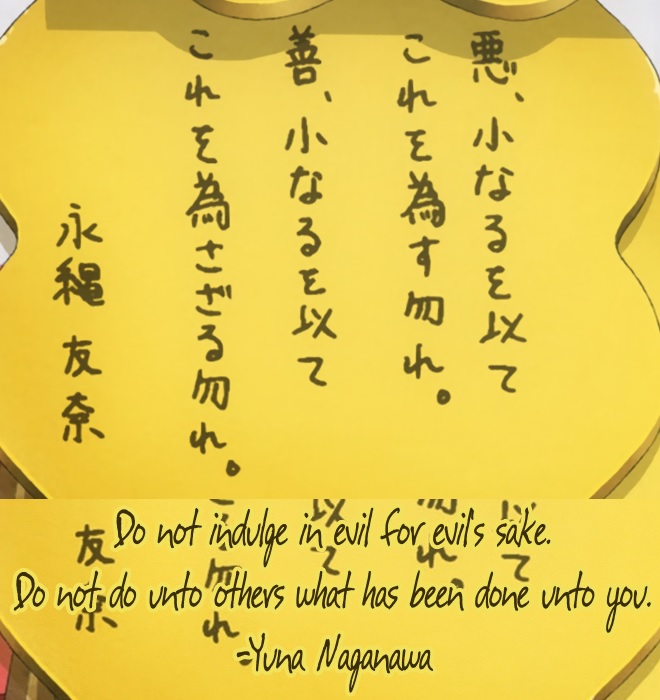 悪、小なるを以て
これを為す勿れ。
善、小なるを以て
これを為さざる勿れ。
永縄 友奈
Do not indulge in evil for evil's sake.
Do not do unto others what has been done unto you.
-Yuna Naganawa